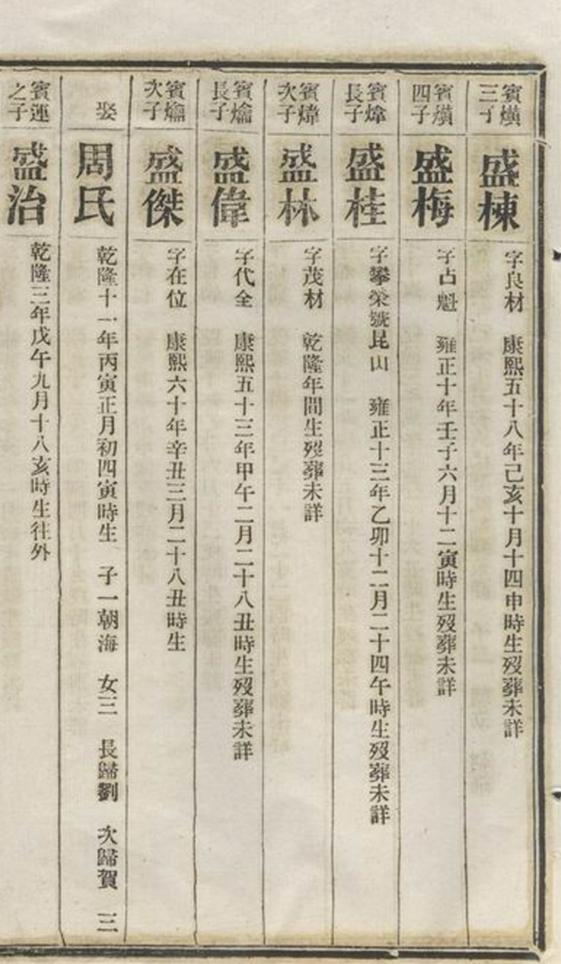 賓熿三子 盛棟 字良材 康熙五十八年己亥十月十四申時生歿葬未詳
賓熿四子 盛梅 字占魁 雍正十年壬子六月十二寅時生歿葬未詳
賓煒長子 盛桂 字攀榮號昆山 雍正十三年乙卯十二月二十四午時生歿葬未詳
賓煒次子 盛林 字茂材 乾隆年間生歿葬未詳
賓爚長子 盛偉 字代全 康熙五十三年甲午二月二十八丑時生歿葬未詳
賓爚次子 盛傑 字在位 康熙六十年辛丑三月二十八丑時生
娶 周氏 乾隆十一年丙寅正月初四寅時生 子一朝海 女三 長歸劉 次歸賀 三
賓連之子 盛治 乾隆三年戊午九月十八亥時生往外